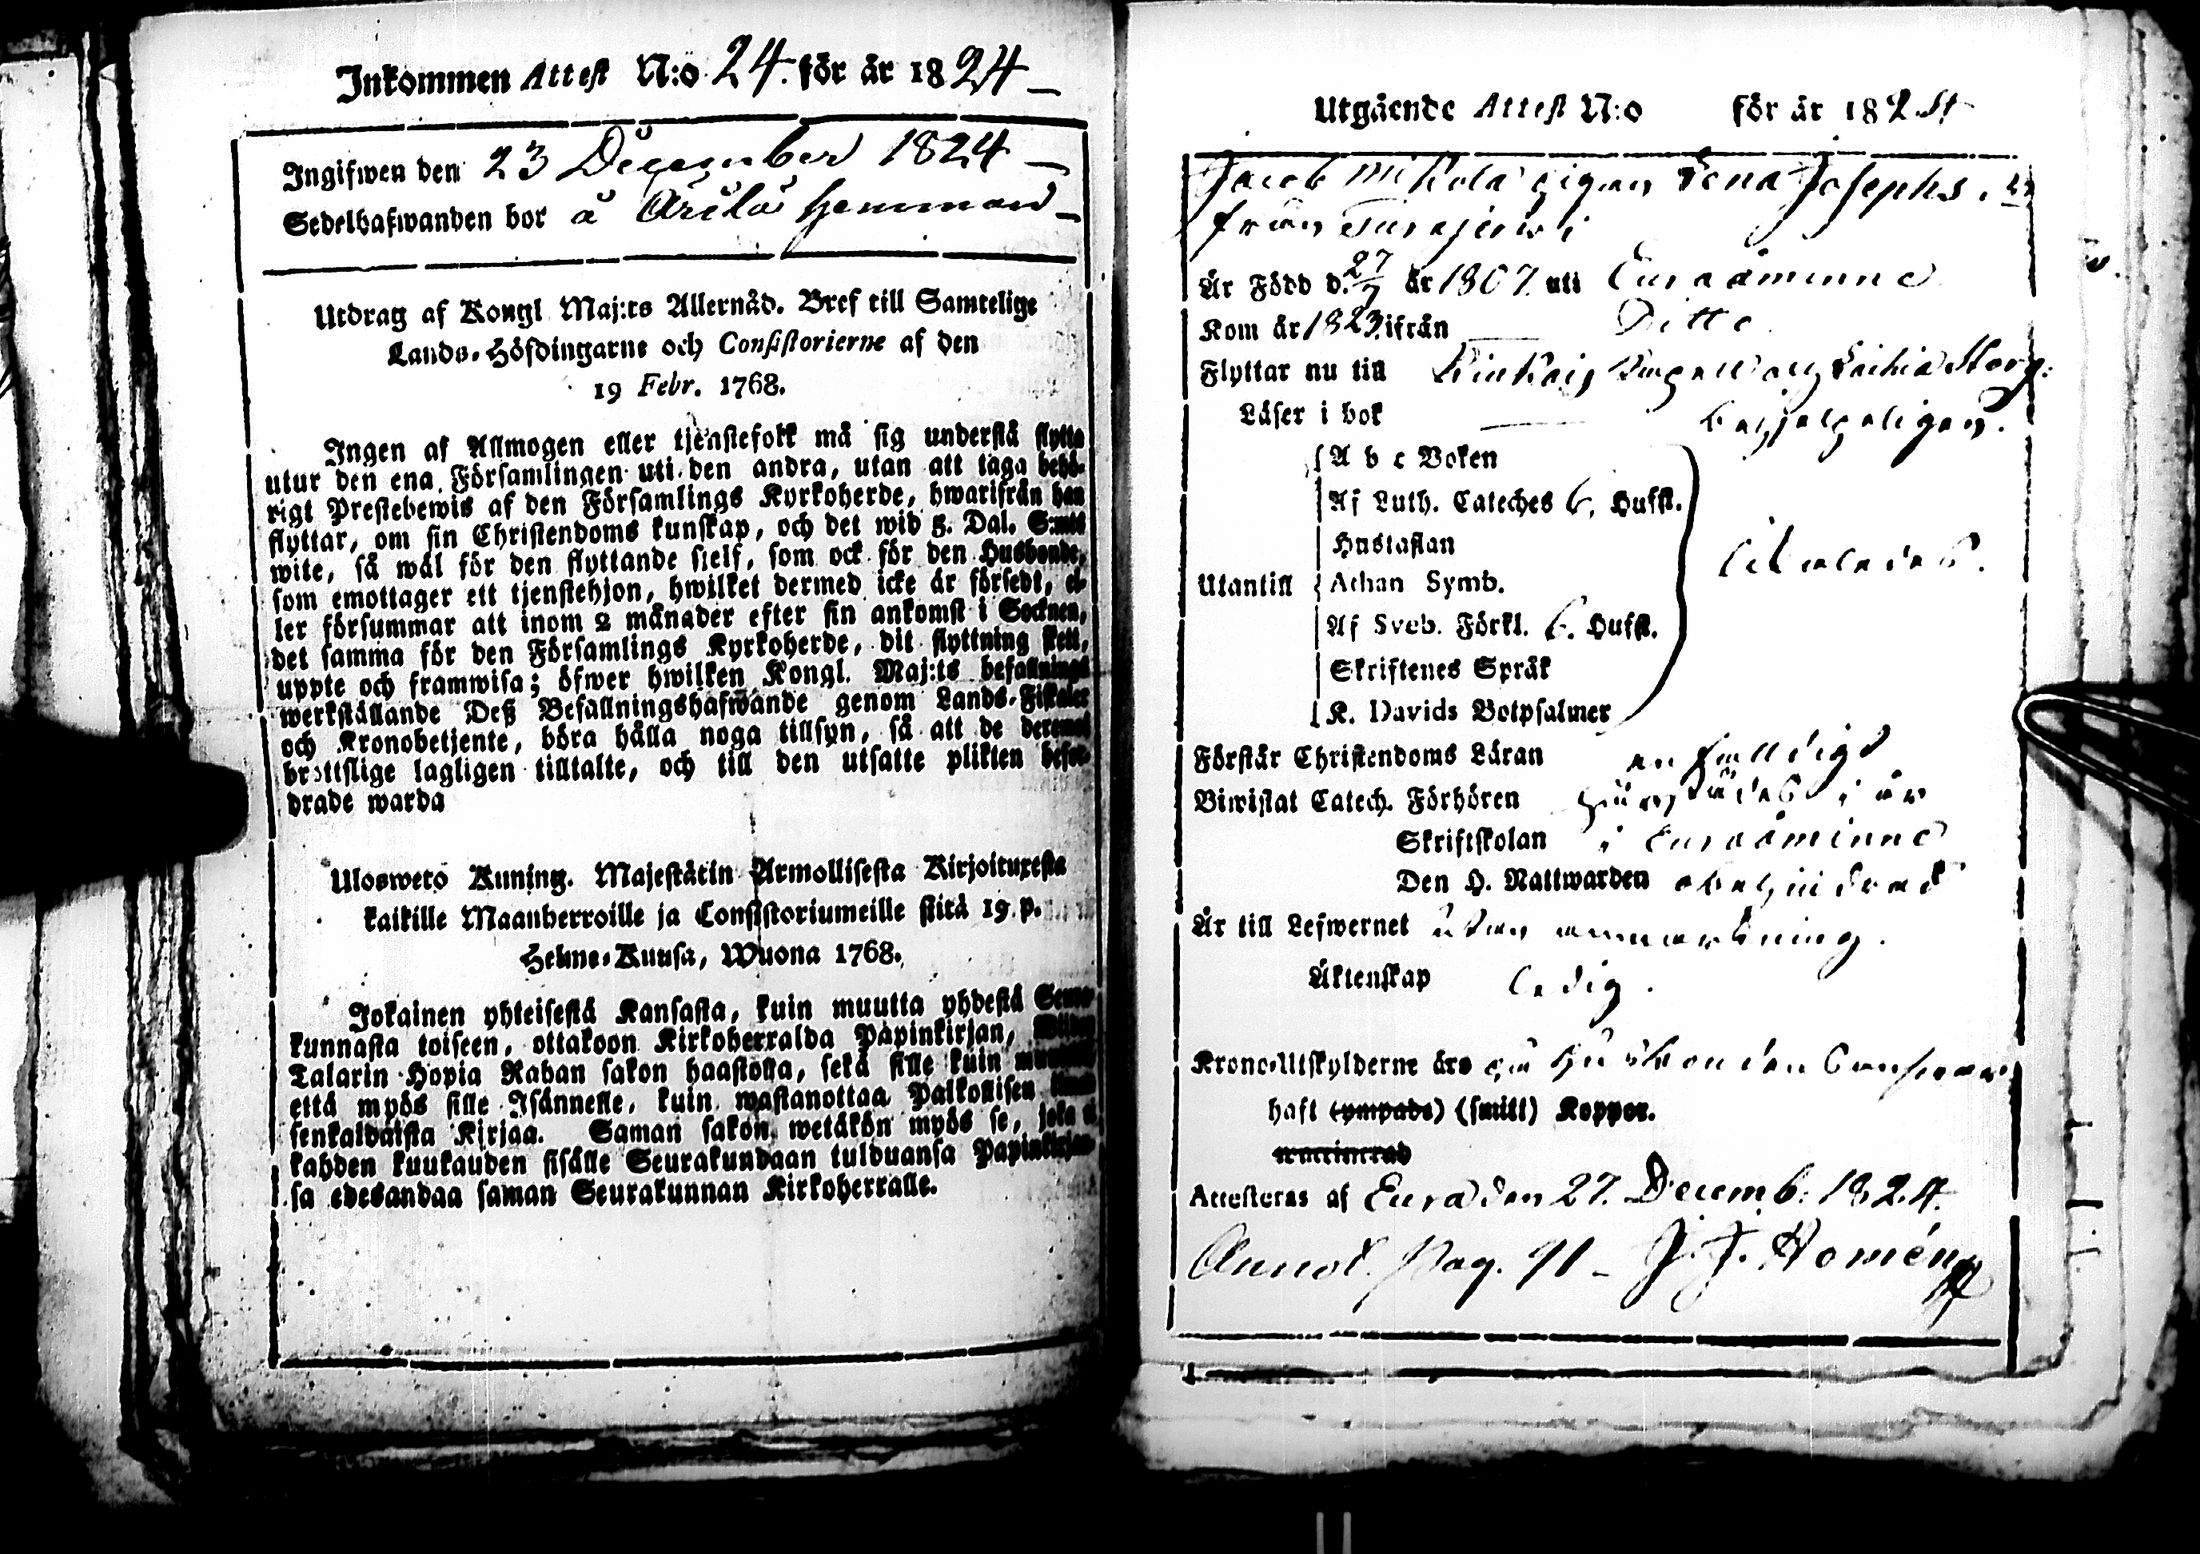 Inkommen Attest N:o 24. för år 1824
Ingifwen den 23 December 1824
Sedelhafwanden bor å Arela hemman
Utdrag af Kongl Maj:ts Allernåd. Bref till Samtelige
Lands-Höfdingarne och Consistorierne af den
19 Febr. 1768.
Ingen af Allmogen eller tjenstefolk må sig understå flytta
utur den ena Församlingen uti den andra, utan att taga behö-
rigt Prestebewis af den Församlings Kyrkoherde, hwarifrån han
flyttar, om sin Christendoms kunskap, och det wid 3. Dal. S:mts
wite, så wäl för den flyttande sielf, som ock för den Husbonde,
som emottager ett tjenstehjon, hwilket dermed icke är försedt, el-
ler försummar att inom 2 månader efter sin ankomst i Socknen,
det samma för den Församlings Kyrkoherde, dit flyttning skett,
uppte och framwisa; öfwer hwilken Kongl. Maj:ts befallnings
werkställande Deß Befallningshafwande genom Lands-Fiskaler
och Kronobetjente, böra hålla noga tillsyn, så att de deremot
brottslige lagligen tilltalte, och till den utsatte plikten befor-
drade warda
Ulosweto Kuning. Majestätin Armollisesta Kirjoituxesta
kaikille Maanherroille ja Consistoriumeille siitä 19 p.
Helme-Kuusa, Wuona 1768.
Jokainen yhteisestä Kansasta, kuin muutta yhdestä Seura-
kunnasta toiseen, ottakoon Kirkoherralda Papinkirjan,
Talarin Hopia Rahan sakon haastolla, sekä sille kuin muutta,
että myös sille Isännelle, kuin wastanottaa Palkollisen ilman
senkaldaista Kirjaa. Saman sakon wetäkön myös se, joka ei
kahden kuukauden sisälle Seurakundaan tulduansa Papinkirjan-
sa edesandaa saman Seurakunnan Kirkoherralle.
Utgående Attest N:o för år 1824
Jacob Mikola pigan Lena Josephs.
från Turajerwi
Är Född d. 27/7 år 1807. uti Euraåminne
Kom år 1823. ifrån Ditto
Flyttar nu till
Läser i bok behjelpeligen.
A b c Boken
Af Luth. Cateches 6. Hufst.
Hustaflan
Utantill Athan Symb. likaledes.
Af Sveb. Förkl. 6. Hufst.
Skriftenes Språk
K. Davids Botpsalmer
Förstår Christendoms Läran enfalldigt
Biwistat Catech. Förhören härstädes i år
Skriftskolan i Euraåminne
Den H. Nattwarden obehindrad
Är till Lefwernet utan anmärkning.
Äktenskap ledig.
Krono-Utskylderne äro på Husbonden
haft (ympade) (smitt) Koppor.
waccinerad
Attesteras af Eura den 27. Decemb: 1824.
Annot. Pag. 91 - J. F. Homén